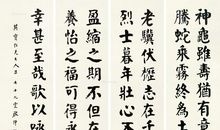 神龜雖壽猶有竟
騰蛇乘霧終為土
老驥伏櫪志在千
烈士暮年壯心不
盈縮之期不但在
養怡之福可得永
幸甚至哉歌以詠